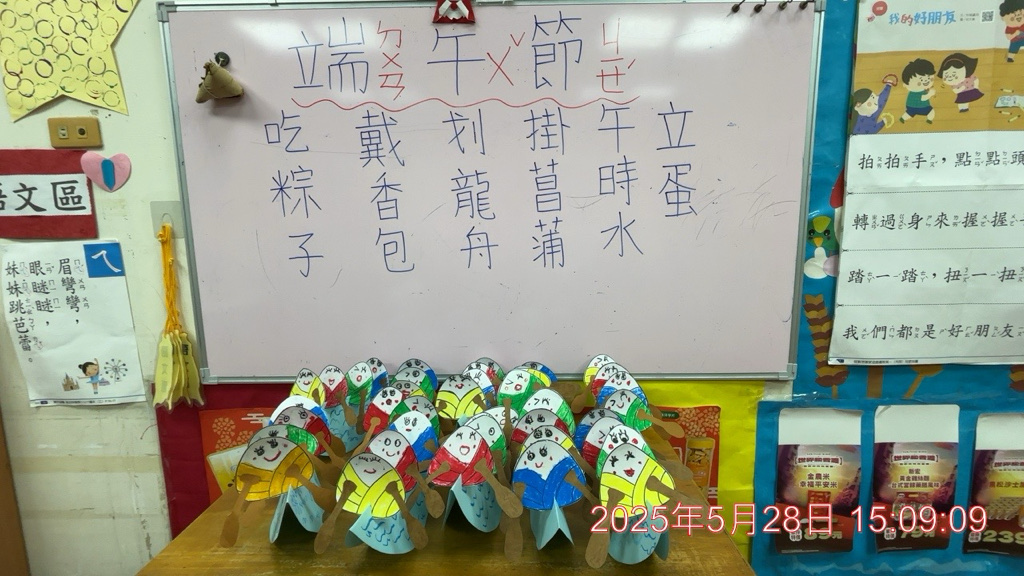 端ㄉㄨㄢ午ㄨˇ節ㄐㄧㄝˊ
吃粽子
戴香包
划龍舟
掛菖蒲
午時水
立蛋
語文區
ㄟ
眉彎彎，
眼瞇瞇，
妹妹跳芭蕾。
我的好朋友
拍拍手，點點頭
轉過身來握握
踏一踏，扭一扭
我們都是好朋友
金農米
幸福平安米
2025年5月28日 15:09:09